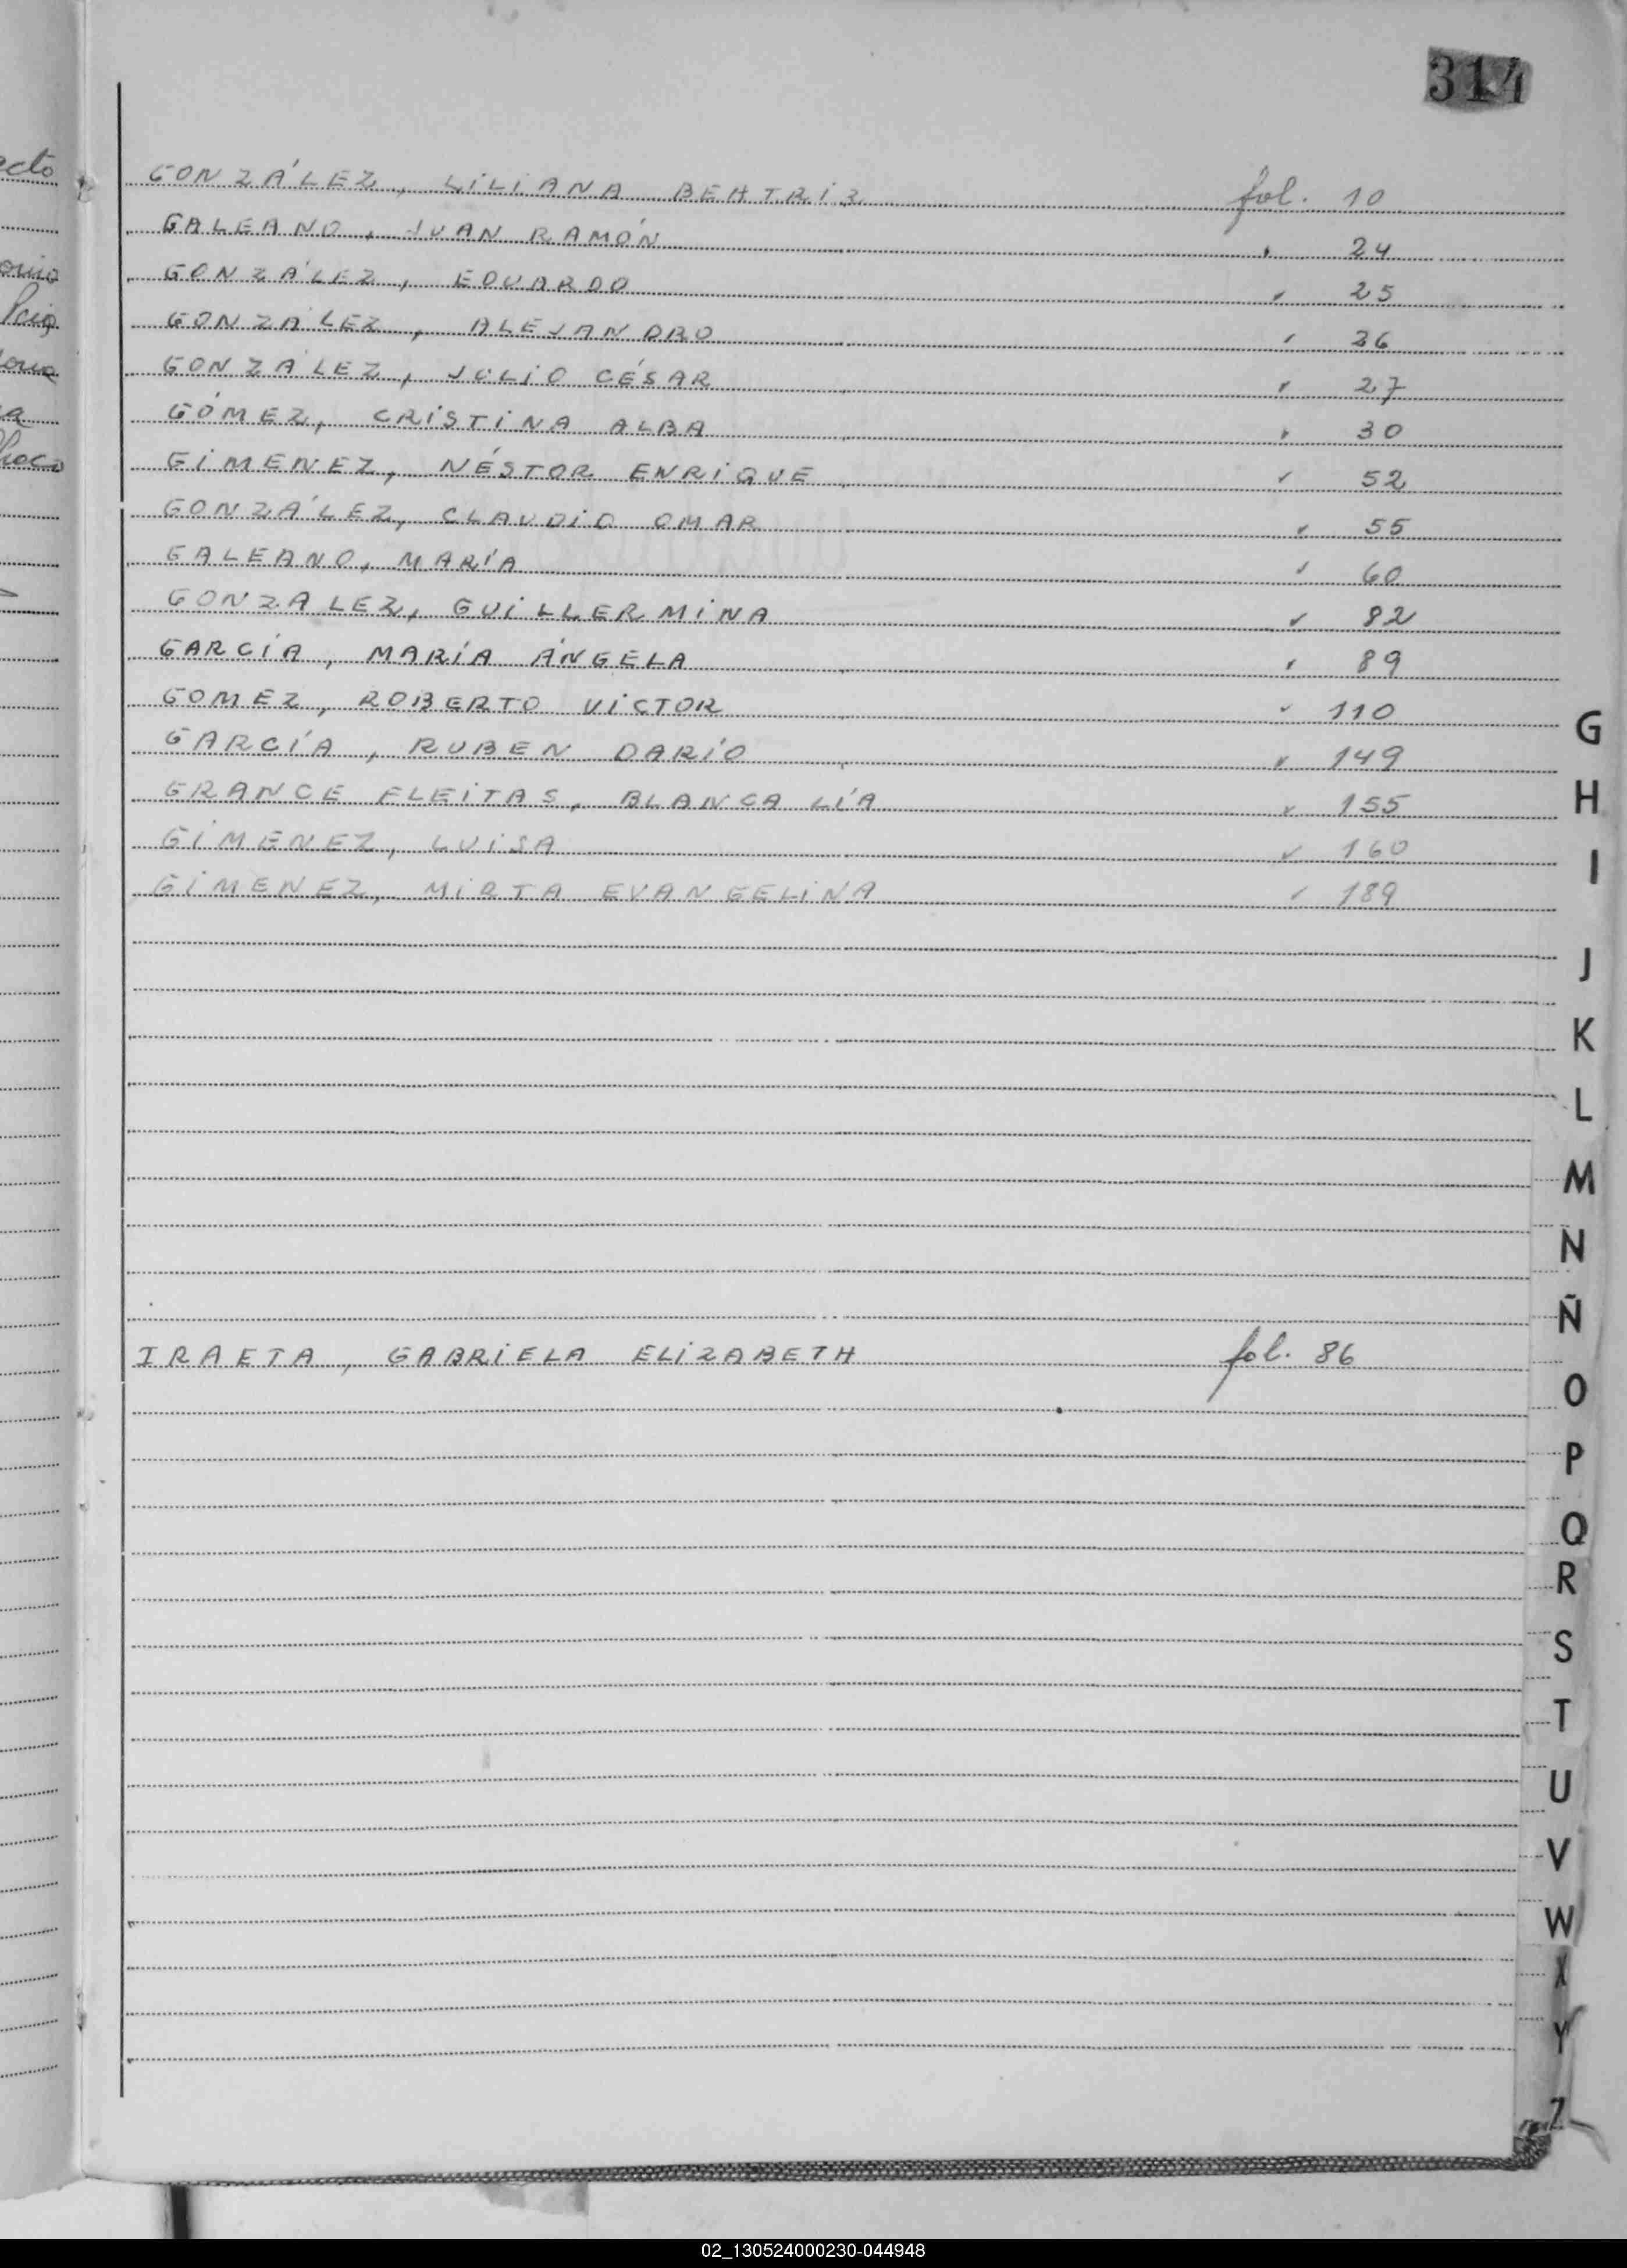 314
GONZÁLEZ, LILIANA BEATRIZ fol. 10
GALEANO, JUAN RAMÓN " 24
GONZÁLEZ, EDUARDO " 25
GONZÁLEZ, ALEJANDRO " 26
GONZÁLEZ, JULIO CÉSAR " 27
GÓMEZ, CRISTINA ALBA " 30
GIMENEZ, NÉSTOR ENRIQUE " 52
GONZÁLEZ, CLAUDIO OMAR " 55
GALEANO, MARÍA " 60
GONZALEZ, GUILLERMINA " 82
GARCÍA, MARÍA ÁNGELA " 89
GOMEZ, ROBERTO VICTOR " 110
GARCÍA, RUBEN DARÍO " 149
GRANCE FLEITAS, BLANCA LÍA " 155
GIMENEZ, LUISA " 160
GIMENEZ, MIRTA EVANGELINA " 189
IRAETA, GABRIELA ELIZABETH fol. 86
G
H
I
J
K
L
M
N
Ñ
O
P
Q
R
S
T
U
V
W
X
Y
Z
02_130524000230-044948